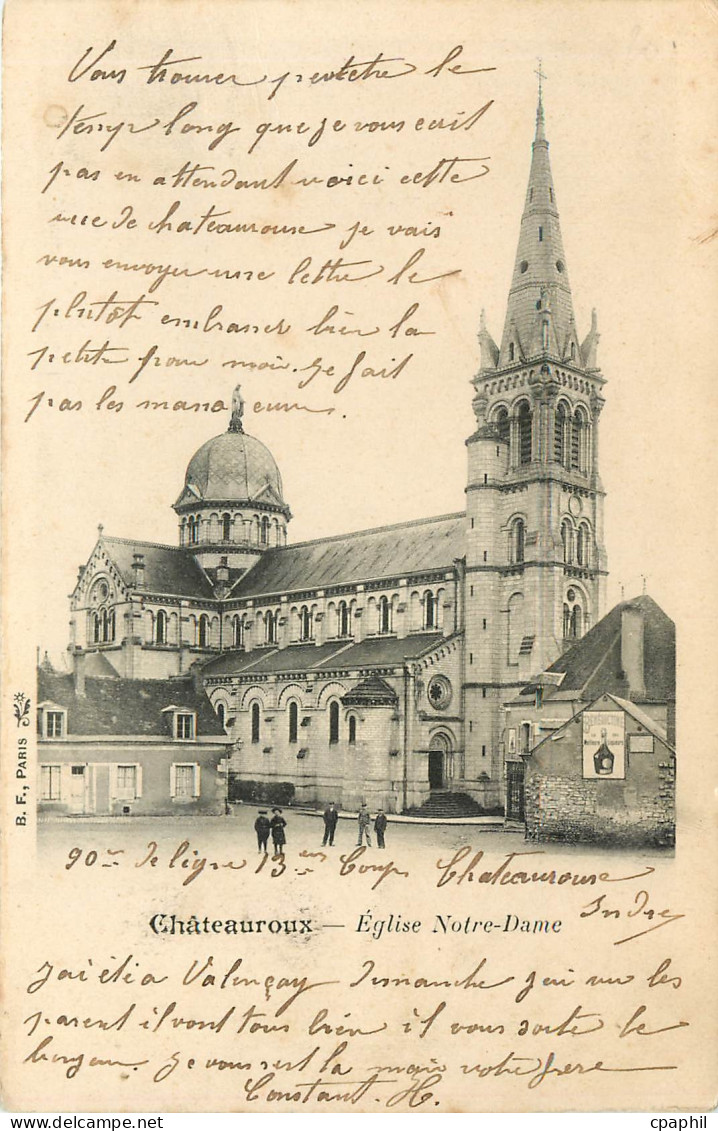 Vous trouver peutetre le
temp long que je vous ecrit
pas en attendant voici cette
vue de chateauroux je vais
vous envoyer une lettre le
plutot embrasser bien la
petite pour moi. Je fait
pas les manaeuvre
B. F., PARIS
90me de ligne 13em Coup Chateauroux
Indre
Châteauroux — Église Notre-Dame
J'ai été a Valençay Dimanche j'ai vu les
parent il vont tous bien il vous soite le
bonjour. Je vous sert la main votre frere
Constant. H.
cpaphil